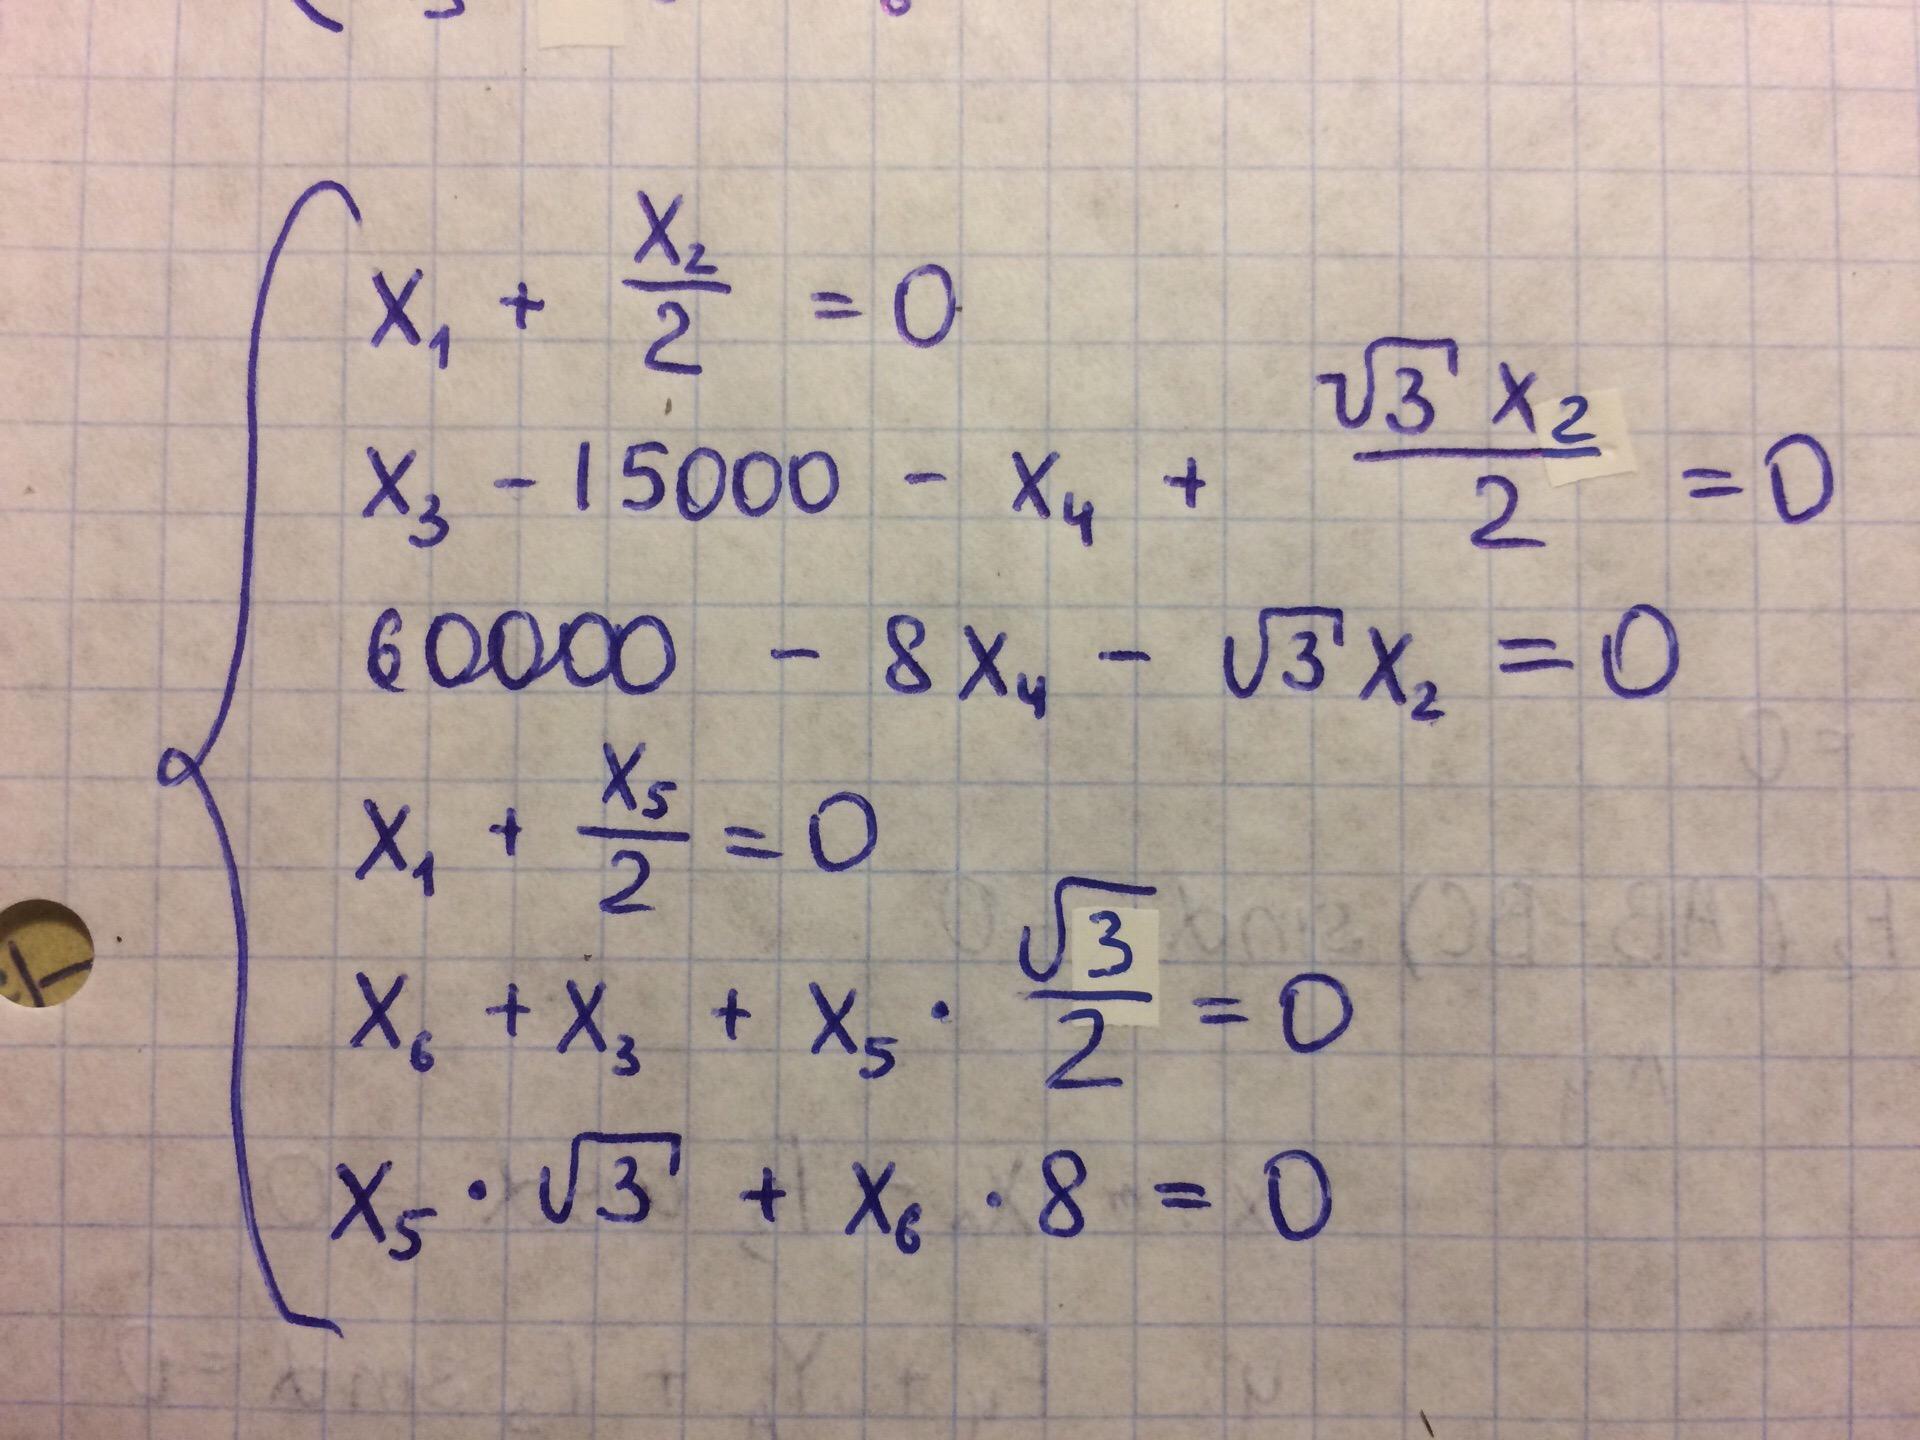 x₁ + x₂/2 = 0
x₃ - 15000 - x₄ + √3 x₂/2 = 0
60000 - 8x₄ - √3 x₂ = 0
x₁ + x₅/2 = 0
x₆ + x₃ + x₅ · √3/2 = 0
x₅ · √3 + x₆ · 8 = 0